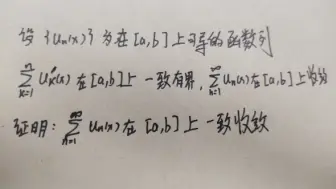 设 {Un(x)} 为在 [a,b] 上可导的函数列
∑_{k=1}^{n} U'k(x) 在 [a,b] 上一致有界, ∑_{n=1}^{∞} Un(x) 在 [a,b] 上收敛
证明: ∑_{n=1}^{∞} Un(x) 在 [a,b] 上一致收敛